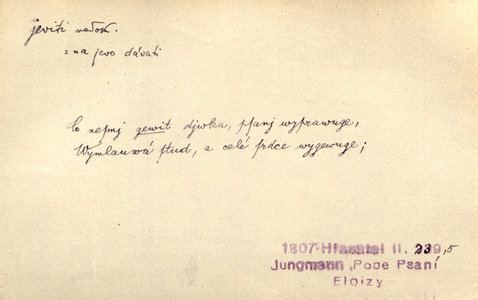 jeviti nedok.
= na jevo dávati
Co nesmj gewit djwka, pſanj wyprawuge,
Wýmlauwá ſtud, a celé ſrdce wygewuge;
1807 Hlasatel II. 239,5
Jungmann, Pope Psaní
Eloizy